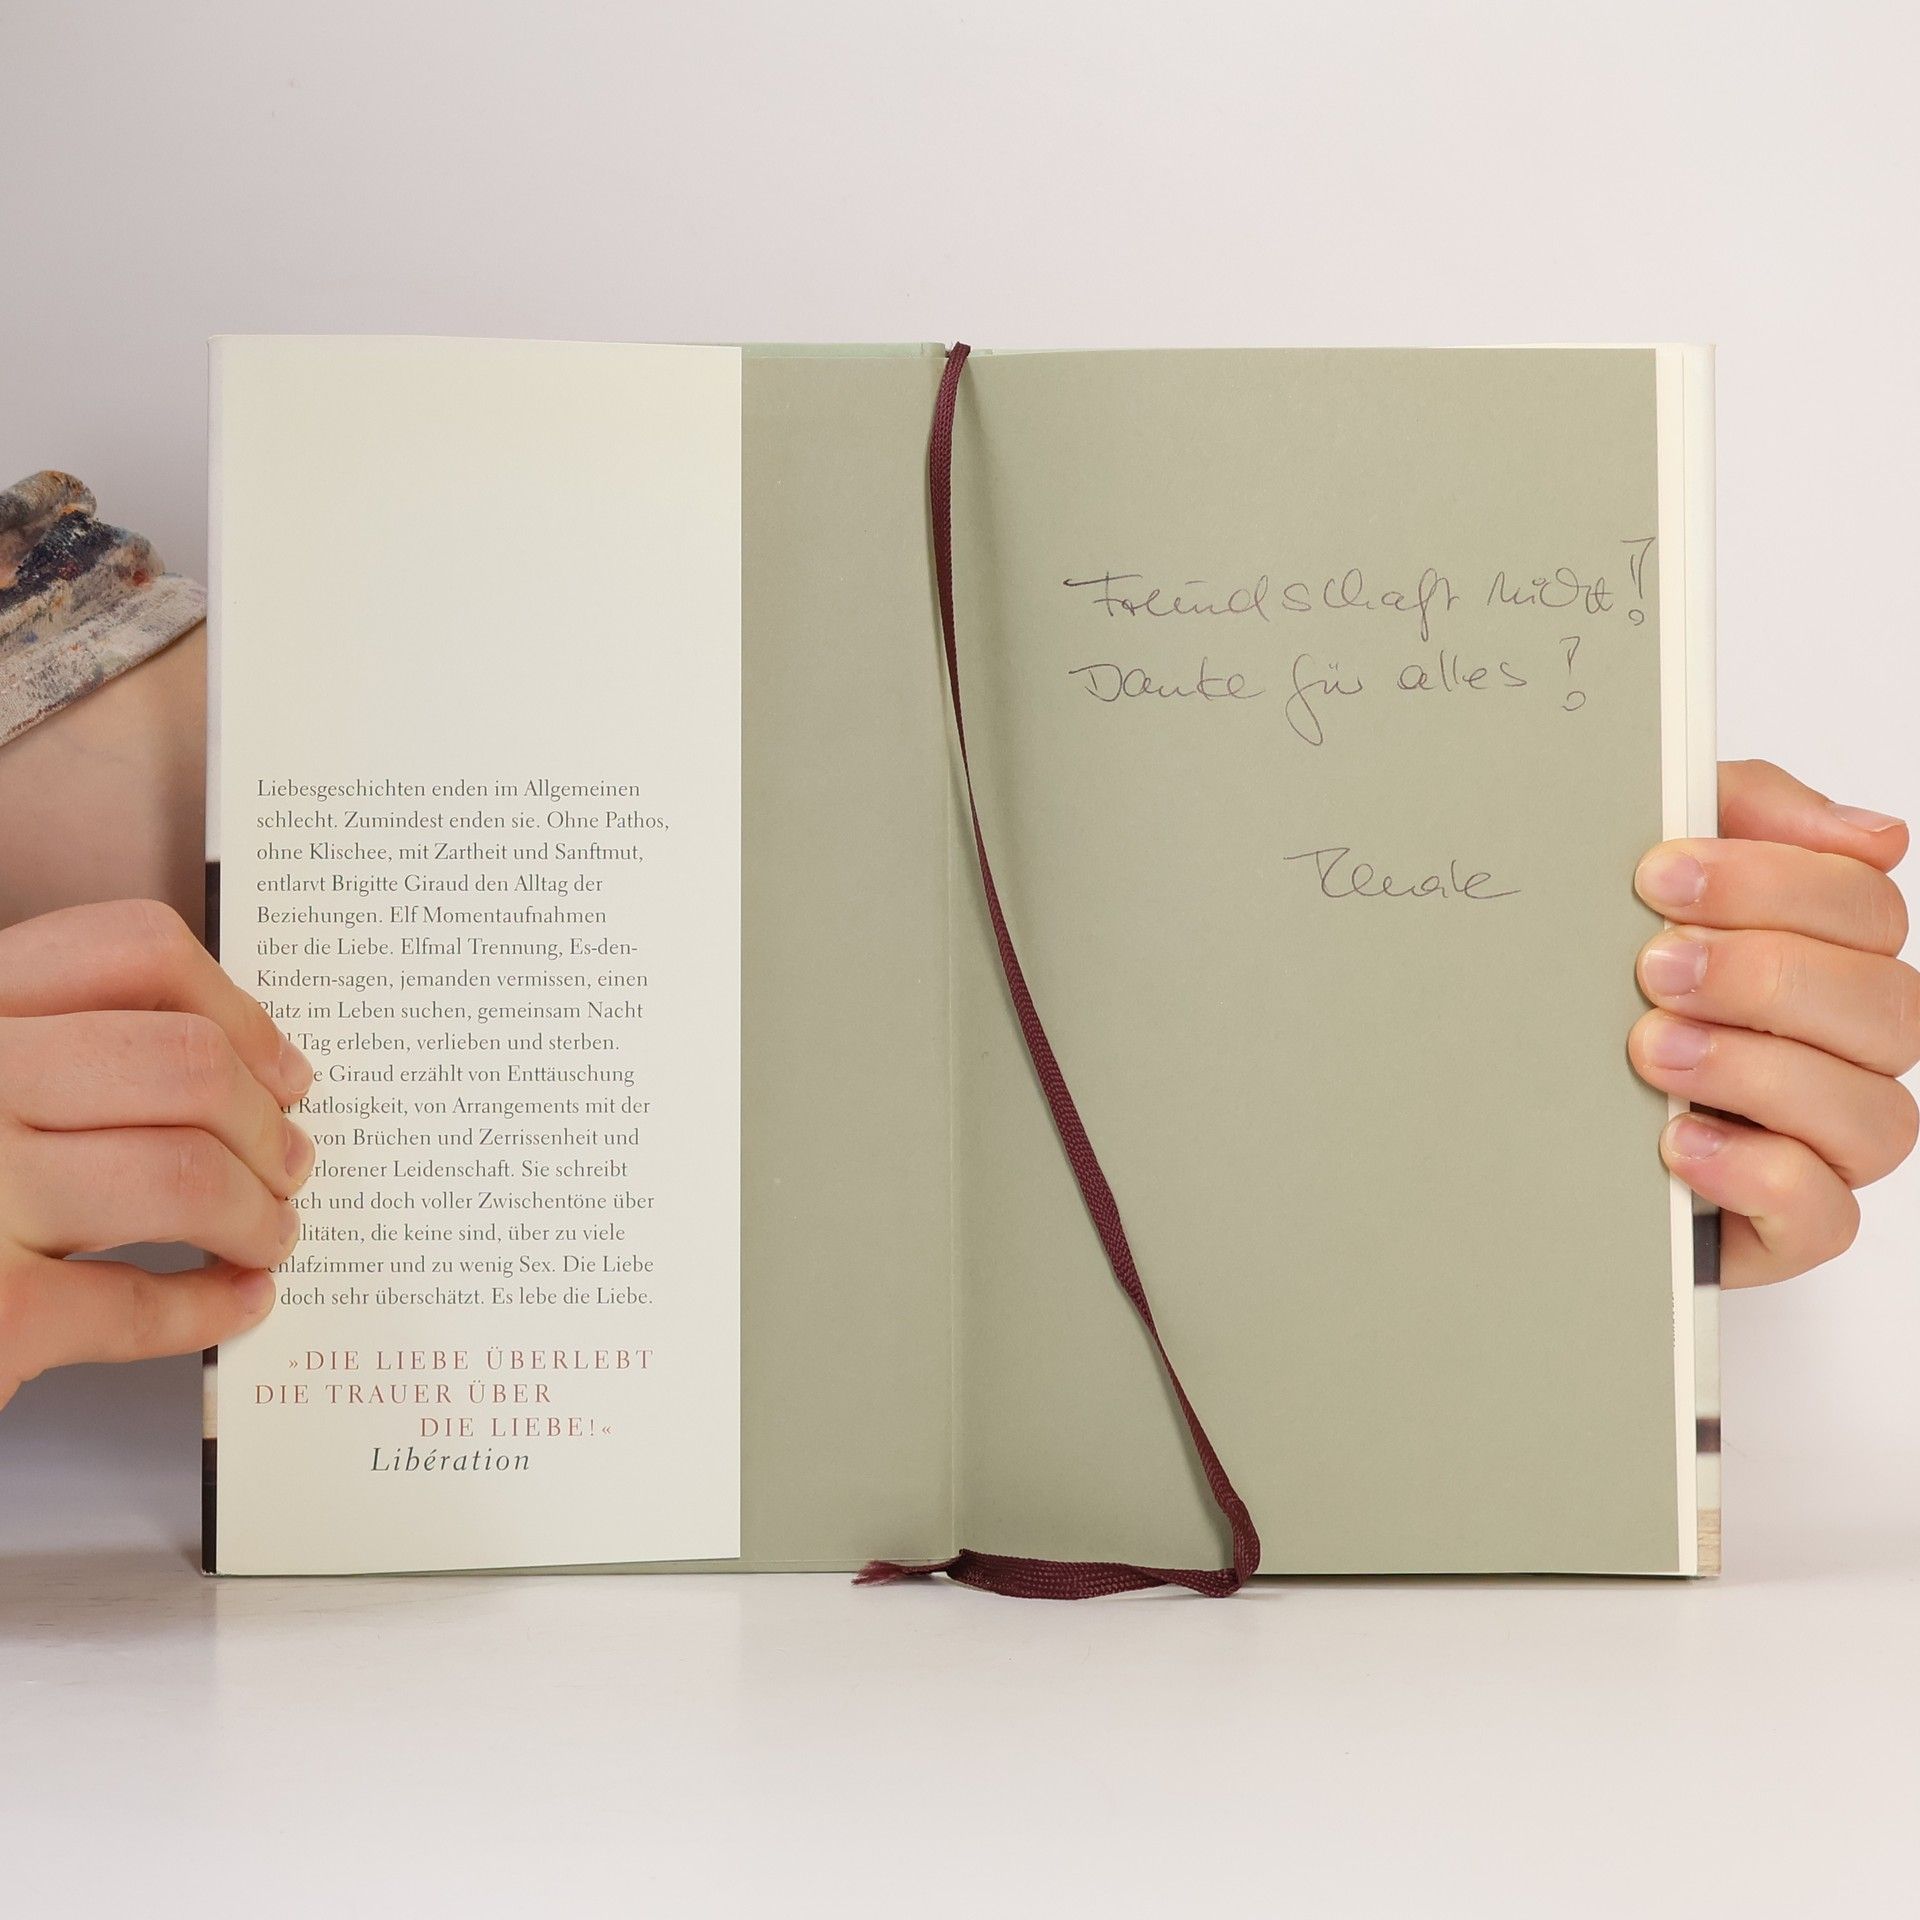 Liebesgeschichten enden im Allgemeinen
schlecht. Zumindest enden sie. Ohne Pathos,
ohne Klischee, mit Zartheit und Sanftmut,
entlarvt Brigitte Giraud den Alltag der
Beziehungen. Elf Momentaufnahmen
über die Liebe. Elfmal Trennung, Es-den-
Kindern-sagen, jemanden vermissen, einen
Platz im Leben suchen, gemeinsam Nacht
Tag erleben, verlieben und sterben.
Giraud erzählt von Enttäuschung
Ratlosigkeit, von Arrangements mit der
von Brüchen und Zerrissenheit und
Leidenschaft. Sie schreibt
und doch voller Zwischentöne über
die keine sind, über zu viele
und zu wenig Sex. Die Liebe
doch sehr überschätzt. Es lebe die Liebe.
»DIE LIEBE ÜBERLEBT
DIE TRAUER ÜBER
DIE LIEBE!«
Libération
Freundschaft nicht!
Danke für alles!
Renate